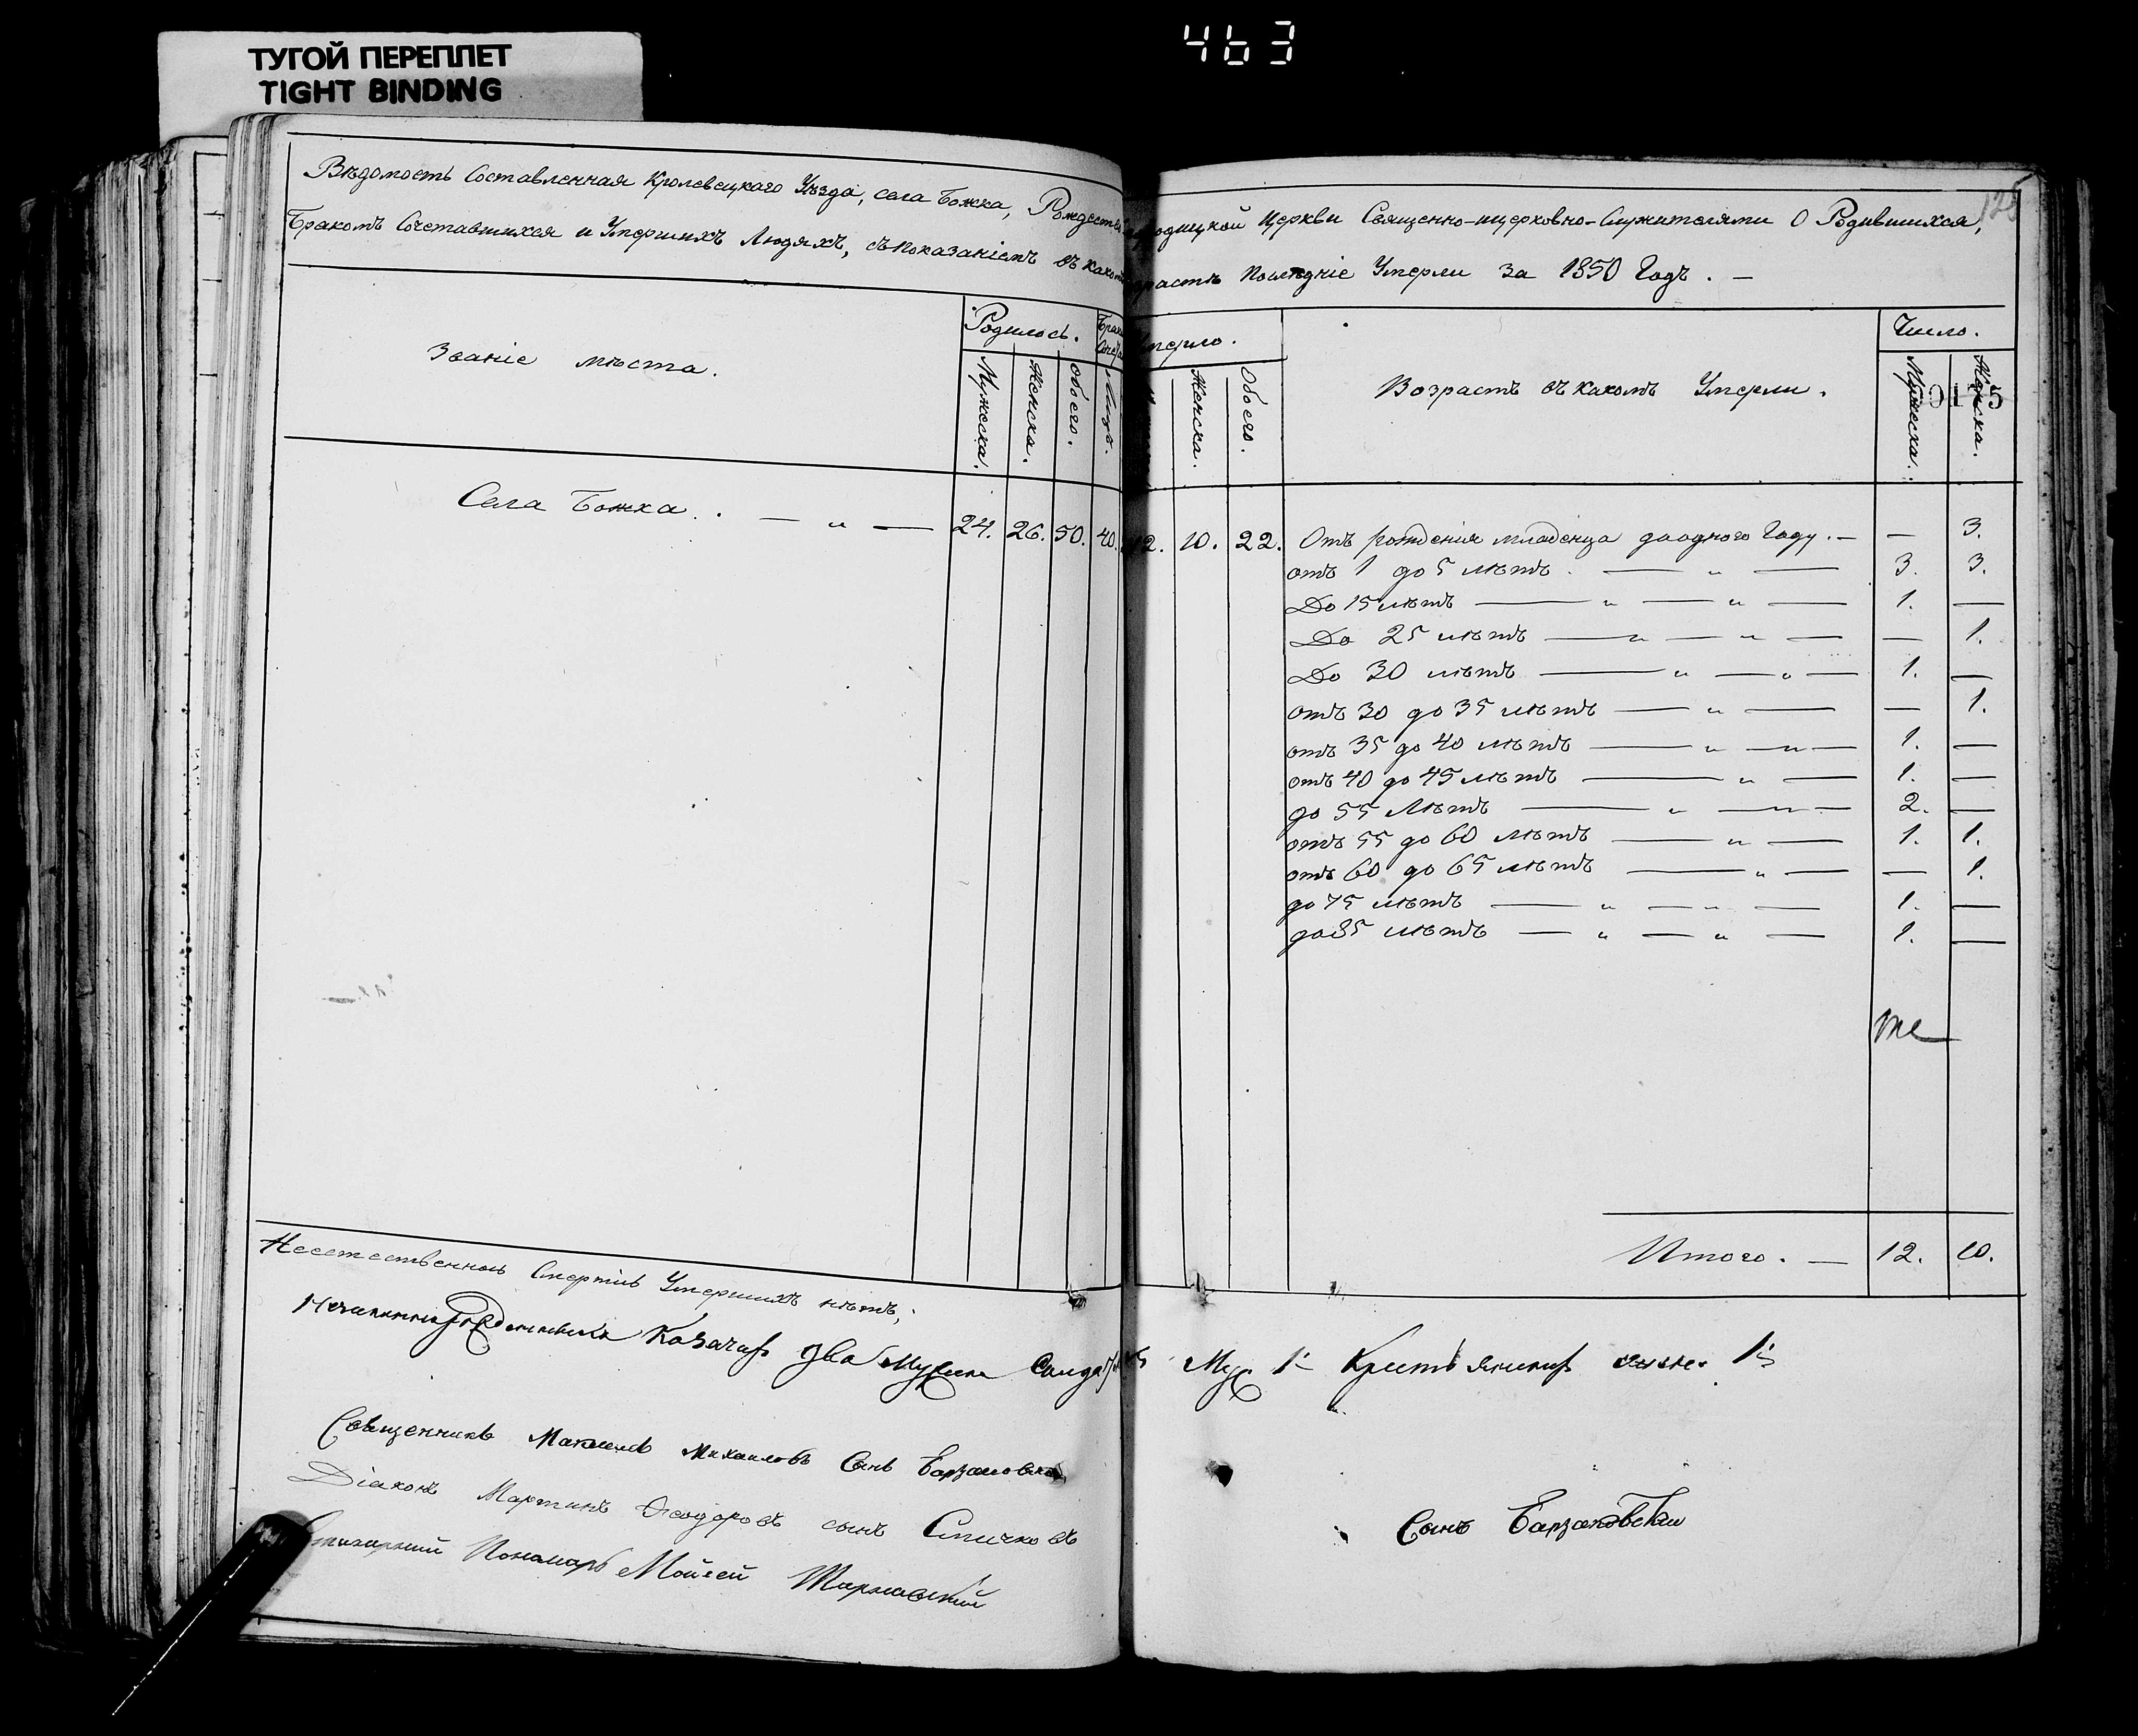 463
ТУГОЙ ПЕРЕПЛЕТ
TIGHT BINDING
Вѣдомость Составленная Кролевецкаго Уѣзда, села Божка, Рождества родицкой Церкви Священно-ицерковно-Служителями О Родившихся,
Бракомъ Сочетавшихся и Умершихъ Людяхъ, съ показаніемъ въ какомъ растѣ Послѣдніе Умерли за 1850 Годъ. —
125
Званіе мѣста.
Родилось.
Мужеска.
Женска.
Обоего.
Лицъ.
мерло.
Женска.
Обоего.
Возрастъ въ какомъ Умерли.
Число.
Мужеска.
Женска.
Села Божка. . — „ — 24. 26. 50. 40. 12. 10. 22.
Отъ рожденія младенца доодного Году. — — 3.
отъ 1 до 5 лѣтъ. — „ — 3. 3.
До 15 лѣтъ — „ — „ — 1. —
До 25 лѣтъ — „ — „ — — 1.
До 30 лѣтъ — „ — „ — 1. —
отъ 30 до 35 лѣтъ — „ — — 1.
отъ 35 до 40 лѣтъ — „ — „ — 1. —
отъ 40 до 45 лѣтъ — „ — 1. —
до 55 Лѣтъ — „ — „ — 2. —
отъ 55 до 60 лѣтъ — „ — 1. 1.
отъ 60 до 65 лѣтъ — „ — — 1.
до 75 лѣтъ — „ — „ — 1. —
до 85 лѣтъ — „ — „ — 1. —
Итого. — 12. 10.
Неестественною Смертію Умершихъ нѣтъ;
Козачьяго два Муж. 1
Священникъ Михаиловъ Сынъ
Діаконъ Мартинъ Ѳеодоровъ сынъ Спичковъ
Пономарь Мойсей
Сынъ Барзаковскій